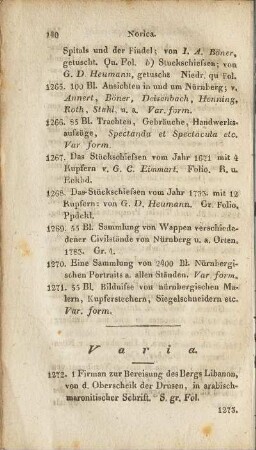 180 Norica.
Spitals und der Findel; von I. A. Böner,
getuscht. Qu. Fol. b) Stückschiefsen; von
G. D. Heumann, getuscht Niedr. qu Fol.
1265. 100 Bl. Ansichten in und um Nürnberg; v.
Annert, Böner, Deisenbach, Henning,
Roth, Stahl, u. a. Var. form.
1266. 85 Bl. Trachten, Gebräuche, Handwerks-
aufzüge, Spectanda et Spectacula etc.
Var form.
1267. Das Stückschiefsen vom Jahr 1671 mit 4
Kupfern v. G. C. Eimmart. Folio. R. u.
Eckbd.
1268. Das Stückschiefsen vom Jahr 1733. mit 12
Kupfern: von G. D. Heumann. Gr. Folio,
Ppdchl.
1269. 55 Bl. Sammlung von Wappen verschie-
dener Civilstände von Nürnberg u. a. Orten.
1783. Gr. 4.
1270. Eine Sammlung von 2400 Bl. Nürnbergi-
schen Portraits a. allen Ständen. Var. form.
1271. 55 Bl. Bildnifse von nürnbergischen Ma-
lern, Kupferstechern, Siegelschneidern etc.
Var. form.
Varia.
1272. 1 Firman zur Bereisung des Bergs Libanon,
von d. Oberscheik der Drusen, in arabisch-
maronitischer Schrift. S. gr. Fol.
1273.